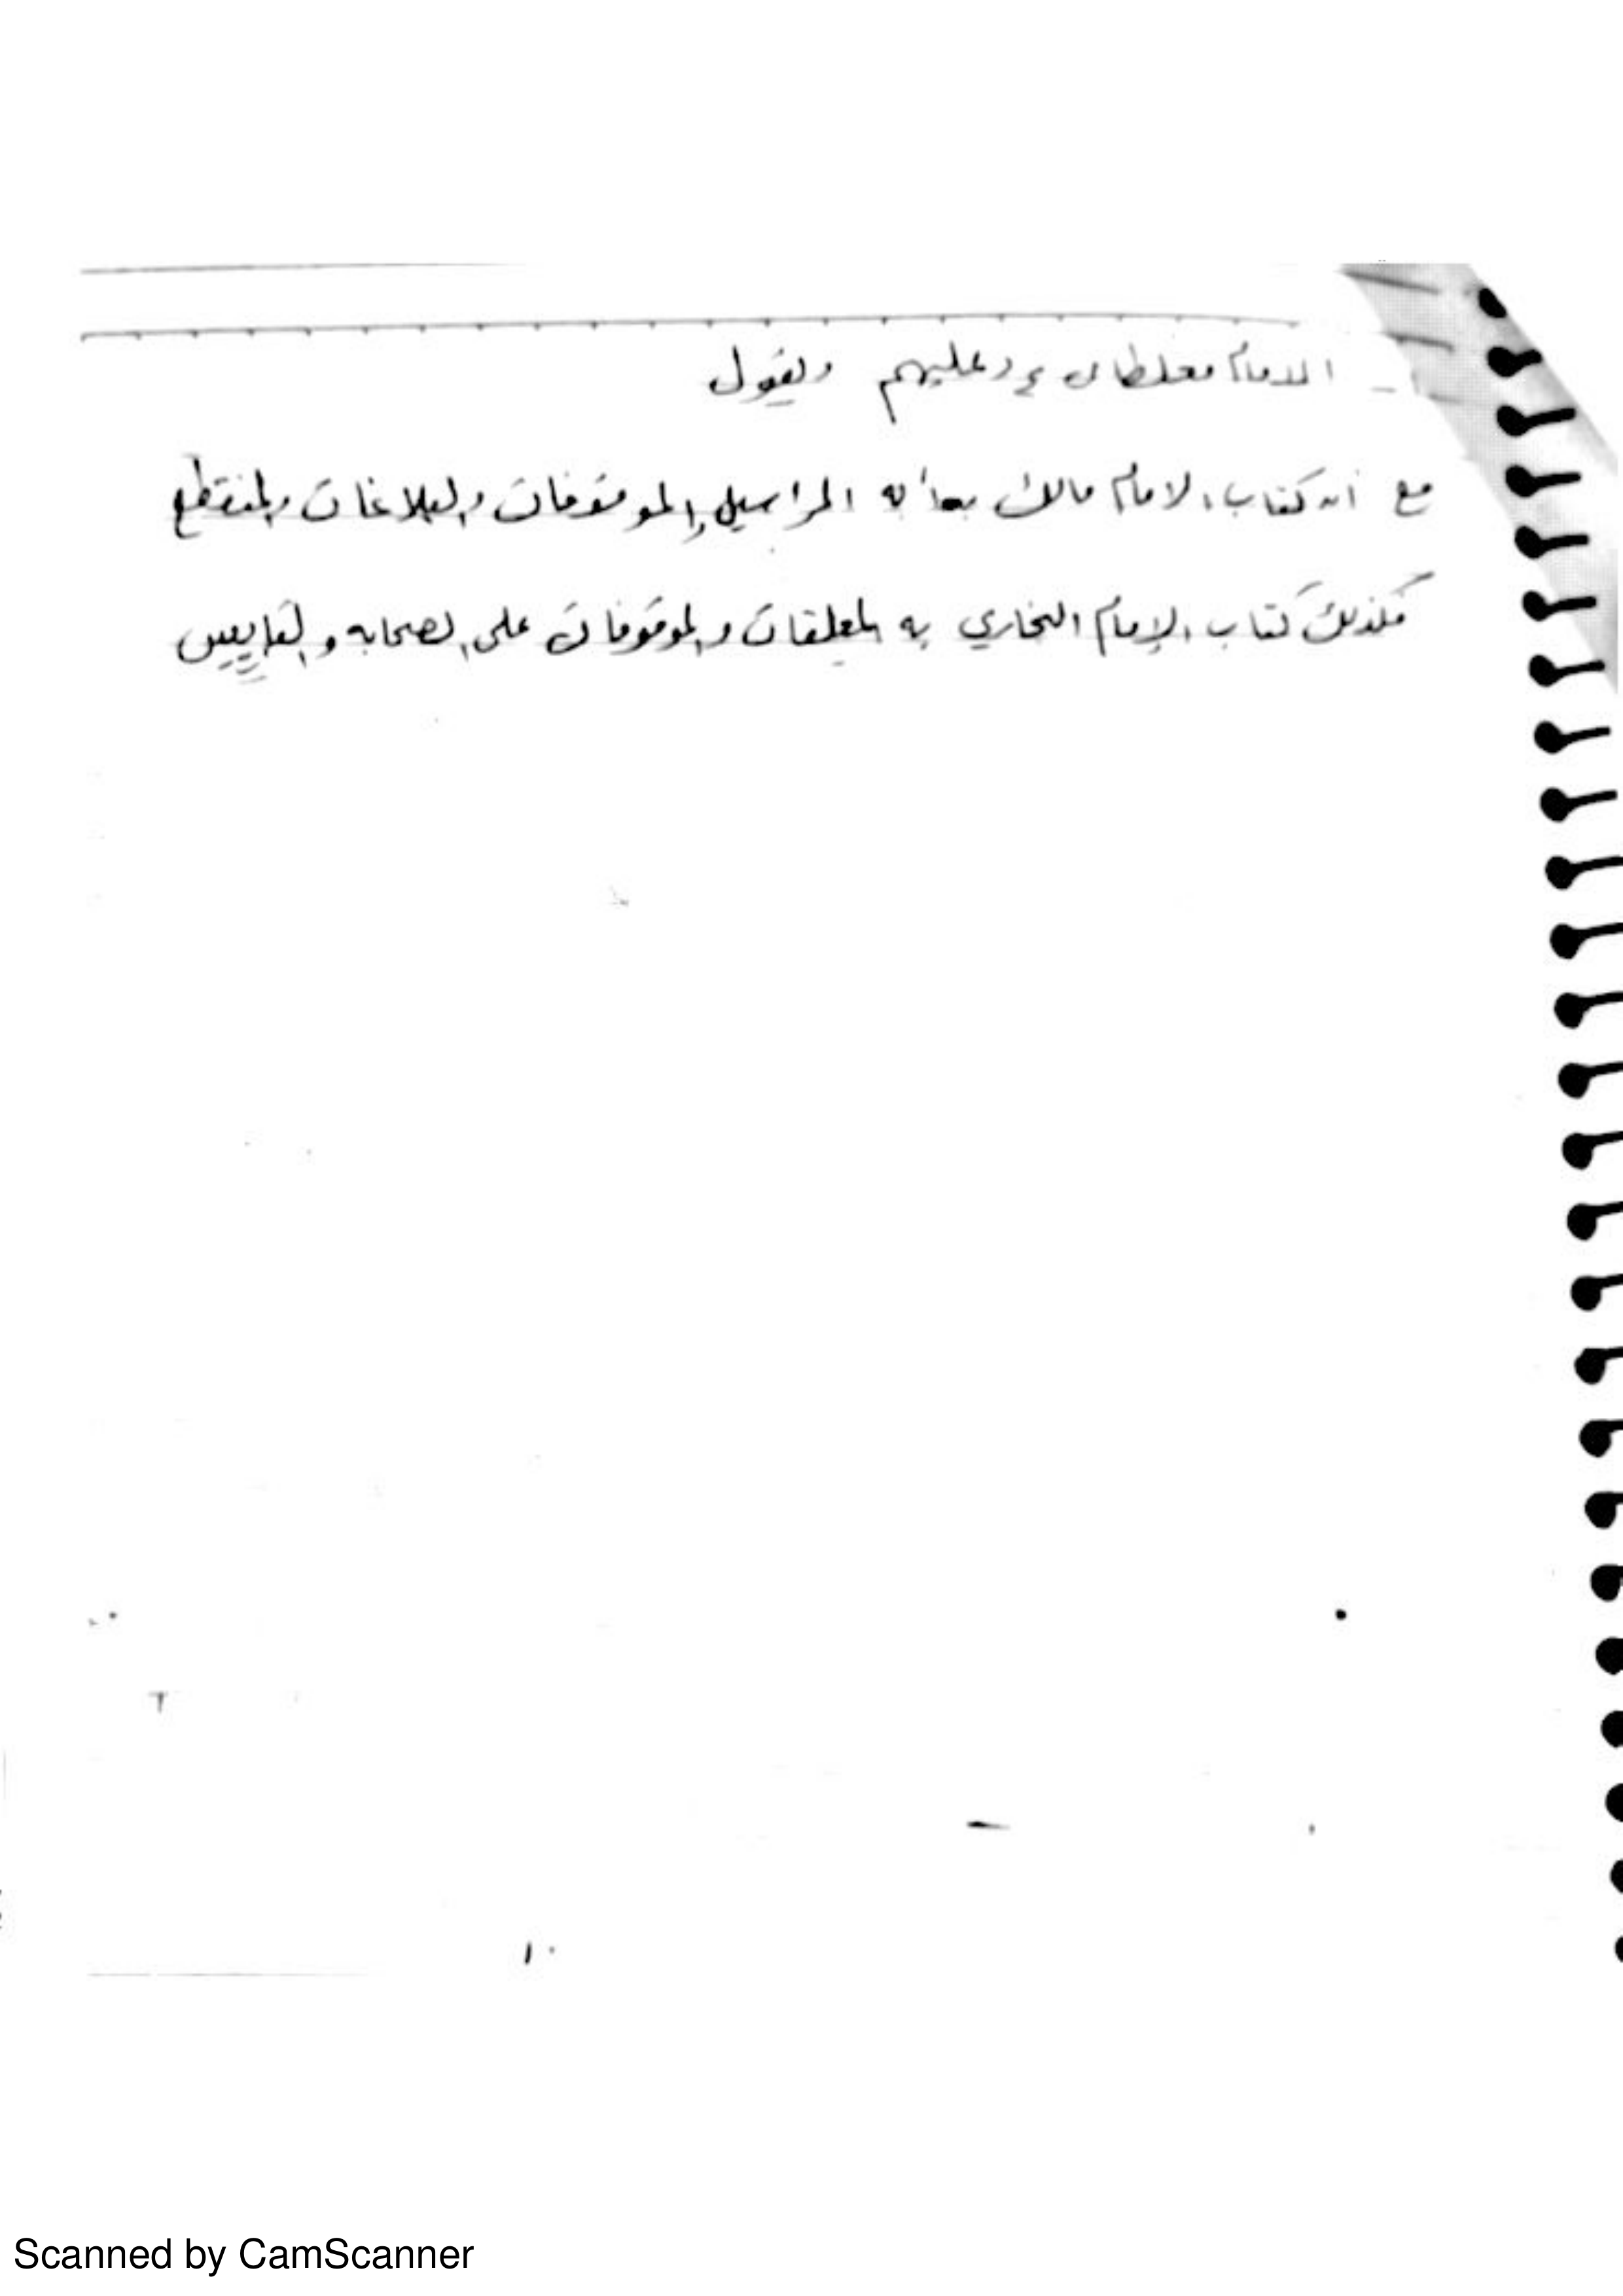 الامام مغلطاى يرد عليهم ويقول
مع أن كتاب الامام مالك به المراسيل والموقوفات والبلاغات والمنقطع
فكذلك كتاب الإمام البخاري به المعلقات والموقوفات على الصحابه والتابعين
١٠
Scanned by CamScanner